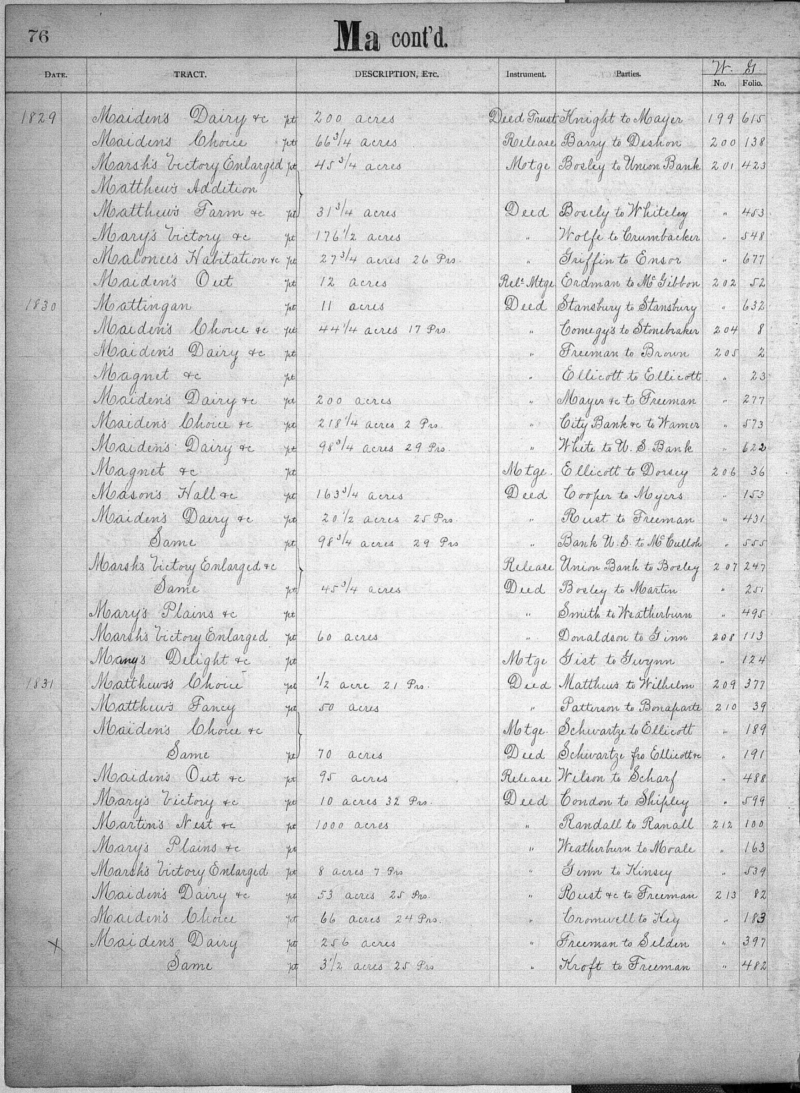 76 Ma cont'd.
W. G
DATE. TRACT. DESCRIPTION, ETC. Instrument. Parties. No. Folio.
1829 Maidens Dairy &c pt 200 acres Deed Trust Knight to Mayer 199 615
Maidens Choice pt 66 3/4 acres Release Barry to Deshon 200 138
Marsh's Victory Enlarged pt 45 3/4 acres Motge Bosley to Union Bank 201 423
Matthews Addition
Matthews Farm &c pt 31 3/4 acres Deed Bosely to Whiteley " 453
Mary's Victory &c pt 176 1/2 acres " Wolfe to Crumbacker " 548
Malonees Habitation &c pt 27 3/4 acres 26 Prs. " Griffin to Ensor " 677
Maiden's Out pt 12 acres Rels Mtge Erdman to McGibbon 202 52
1830 Mattingan pt 11 acres Deed Stansbury to Stansbury " 632
Maiden's Choice &c pt 44 1/4 acres 17 Prs " Comegy's to Stonebraker 204 8
Maiden's Dairy &c pt " Freeman to Brown 205 2
Magnet &c pt " Ellicott to Ellicott " 23
Maiden's Dairy &c pt 200 acres " Mayer &c to Freeman " 277
Maidens Choice &c pt 218 1/4 acres 2 Prs " City Bank &c to Warner " 573
Maiden's Dairy &c pt 98 3/4 acres 29 Prs. " White to U. S Bank " 622
Magnet &c pt Mtge Ellicott to Dorsey 206 36
Mason's Hall &c pt 163 3/4 acres Deed Cooper to Myers " 153
Maiden's Dairy &c pt 20 1/2 acres 25 Prs " Rust to Freeman " 431
Same pt 98 3/4 acres 29 Prs " Bank U.S. to McCulloh " 555
Marsh's Victory Enlarged &c Release Union Bank to Bosley 207 247
Same pt 45 3/4 acres Deed Bosley to Martin " 251
Mary's Plains &c pt " Smith to Weatherburn " 495
Marsh's Victory Enlarged pt 60 acres " Donaldson to Ginn 208 113
Many's Delight &c pt Mtge Gist to Gwynn " 124
1831 Matthews's Choice pt 1/2 acre 21 Prs. Deed Matthews to Wilhelm 209 377
Matthew's Fancy pt 50 acres " Patterson to Bonaparte 210 39
Maiden's Choice &c Mtge Schwartze to Ellicott " 189
Same pt 70 acres Deed Schwartze fro Ellicott &c " 191
Maiden's Out &c pt 95 acres Release Wilson to Scharf " 488
Mary's Victory &c pt 10 acres 32 Prs. Deed Condon to Shipley " 599
Martin's Nest &c pt 1000 acres " Randall to Ranall 212 100
Mary's Plains &c pt " Weatherburn to Moale " 163
Marsh's Victory Enlarged pt 8 acres 7 Prs " Genn to Kinsey " 539
Maiden's Dairy &c pt 53 acres 25 Prs. " Rust &c to Freeman 213 82
Maiden's Choice pt 66 acres 24 Prs. " Cromwell to Key " 183
x Maidens Dairy pt 256 acres " Freeman to Selden " 397
Same pt 3 1/2 acres 25 Prs " Kroft to Freeman " 482